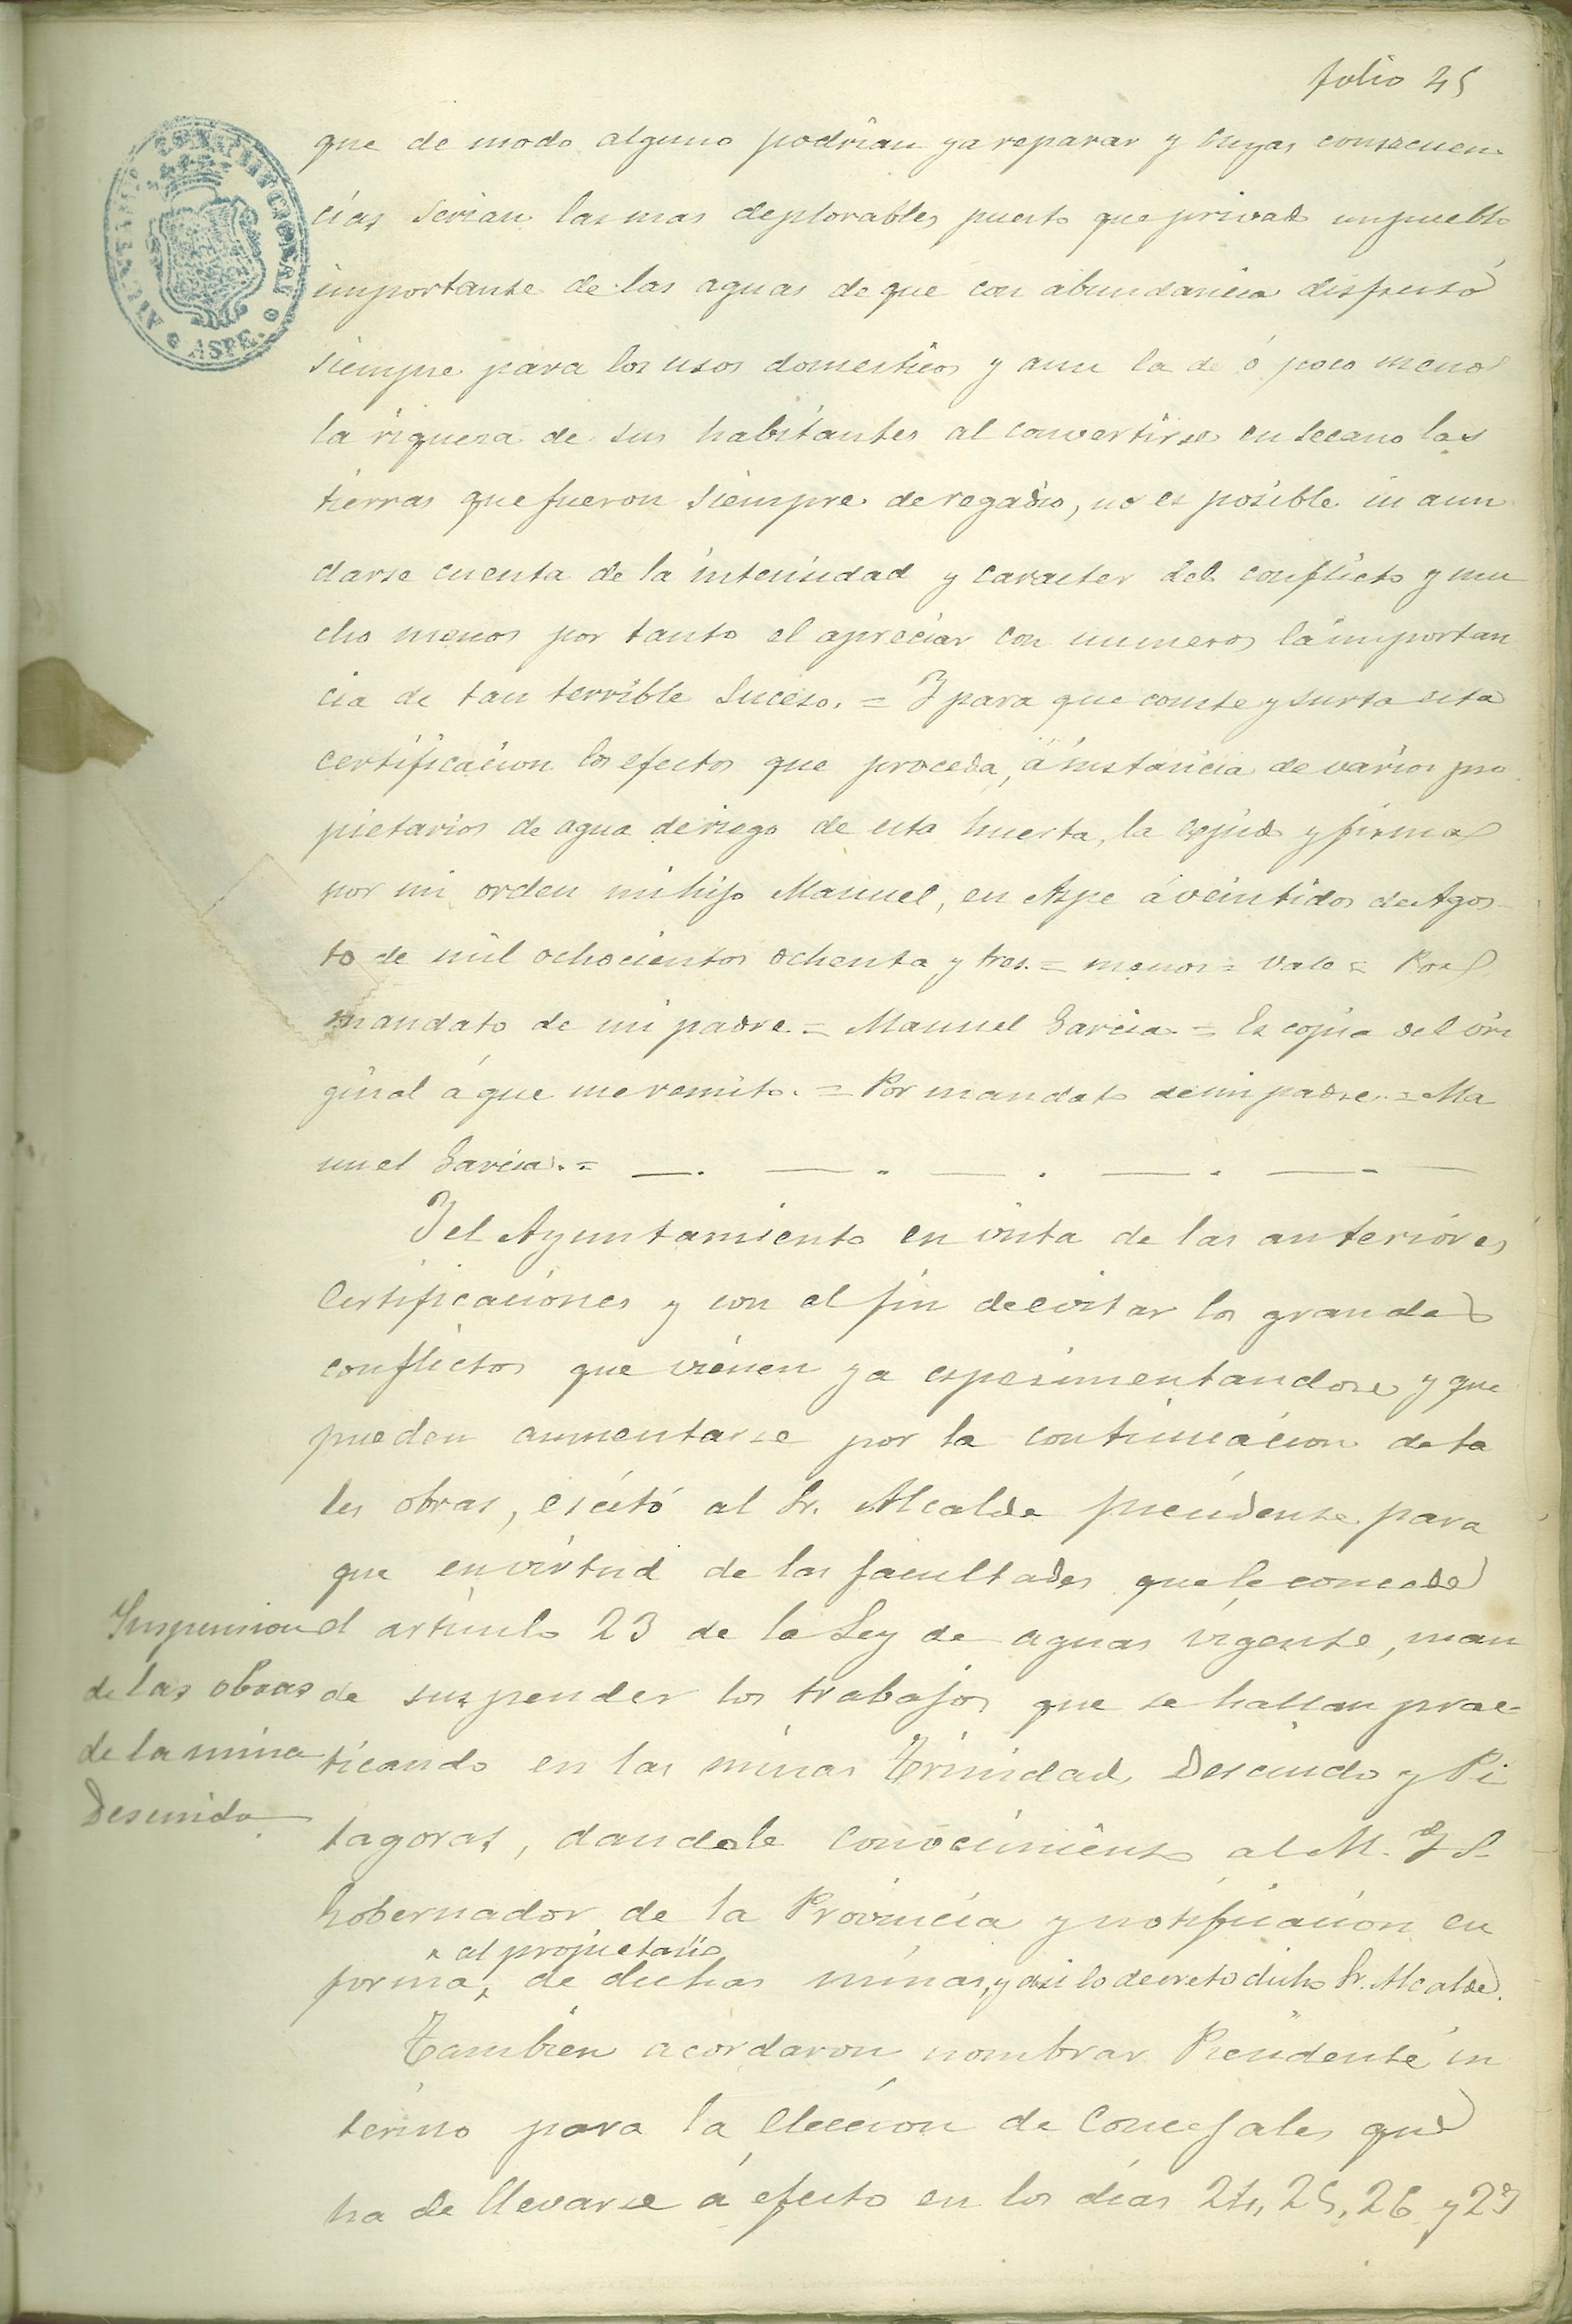 folio 45
AYUNTAMIENTO CONSTITUCIONAL ASPE.
que de modo alguno podrian ya reparar y cuyas consecuen-
cias serian las mas deplorables puesto que privado un pueblo
importante de las aguas de que con abundancia disfrutó
siempre para los usos domesticos y aun la de ó poco menos
la riqueza de sus habitantes al convertirse en secano las
tierras que fueron siempre de regadio, no es posible ni aun
darse cuenta de la intensidad y caracter del conflicto y mu
cho menos por tanto el apreciar con numeros la importan
cia de tan terrible suceso. = Y para que conste y surta esta
certificacion los efectos que proceda, á instancia de varios pro
pietarios de agua de riego de esta huerta, la espido y firma
por mi orden mi hijo Manuel, en Aspe á veintidos de Agos-
to de mil ochocientos ochenta y tres. = menos = Vale = Por
mandato de mi padre = Manuel Garcia. = Es copia del ori
ginal á que me remito. = Por mandato de mi padre. = Ma
nuel Garcia. =
Y el Ayuntamiento en vista de las anteriores
certificaciones y con el fin de evitar los grandes
conflictos que vienen ya esperimentandose y que
pueden aumentarse por la continuacion de ta
les obras, escitó al Sr. Alcalde presidente para
que en virtud de las facultades que le concede
Suspension
de las obras
de la mina
Descuido
el articulo 23 de la Ley de aguas vigente, man
de suspender los trabajos que se hallan prac-
ticando en las minas Trinidad, Descuido y Pi
tagoras, dandole conocimiento al M. Y S.
Gobernador de la Provincia y notificacion en
al propietario
forma, de dichas minas, y asi lo decretó dicho Sr. Alcalde.
Tambien acordaron nombrar Presidente in
terino para la eleccion de Concejales que
ha de llevarse á efecto en los dias 24, 25, 26 y 27